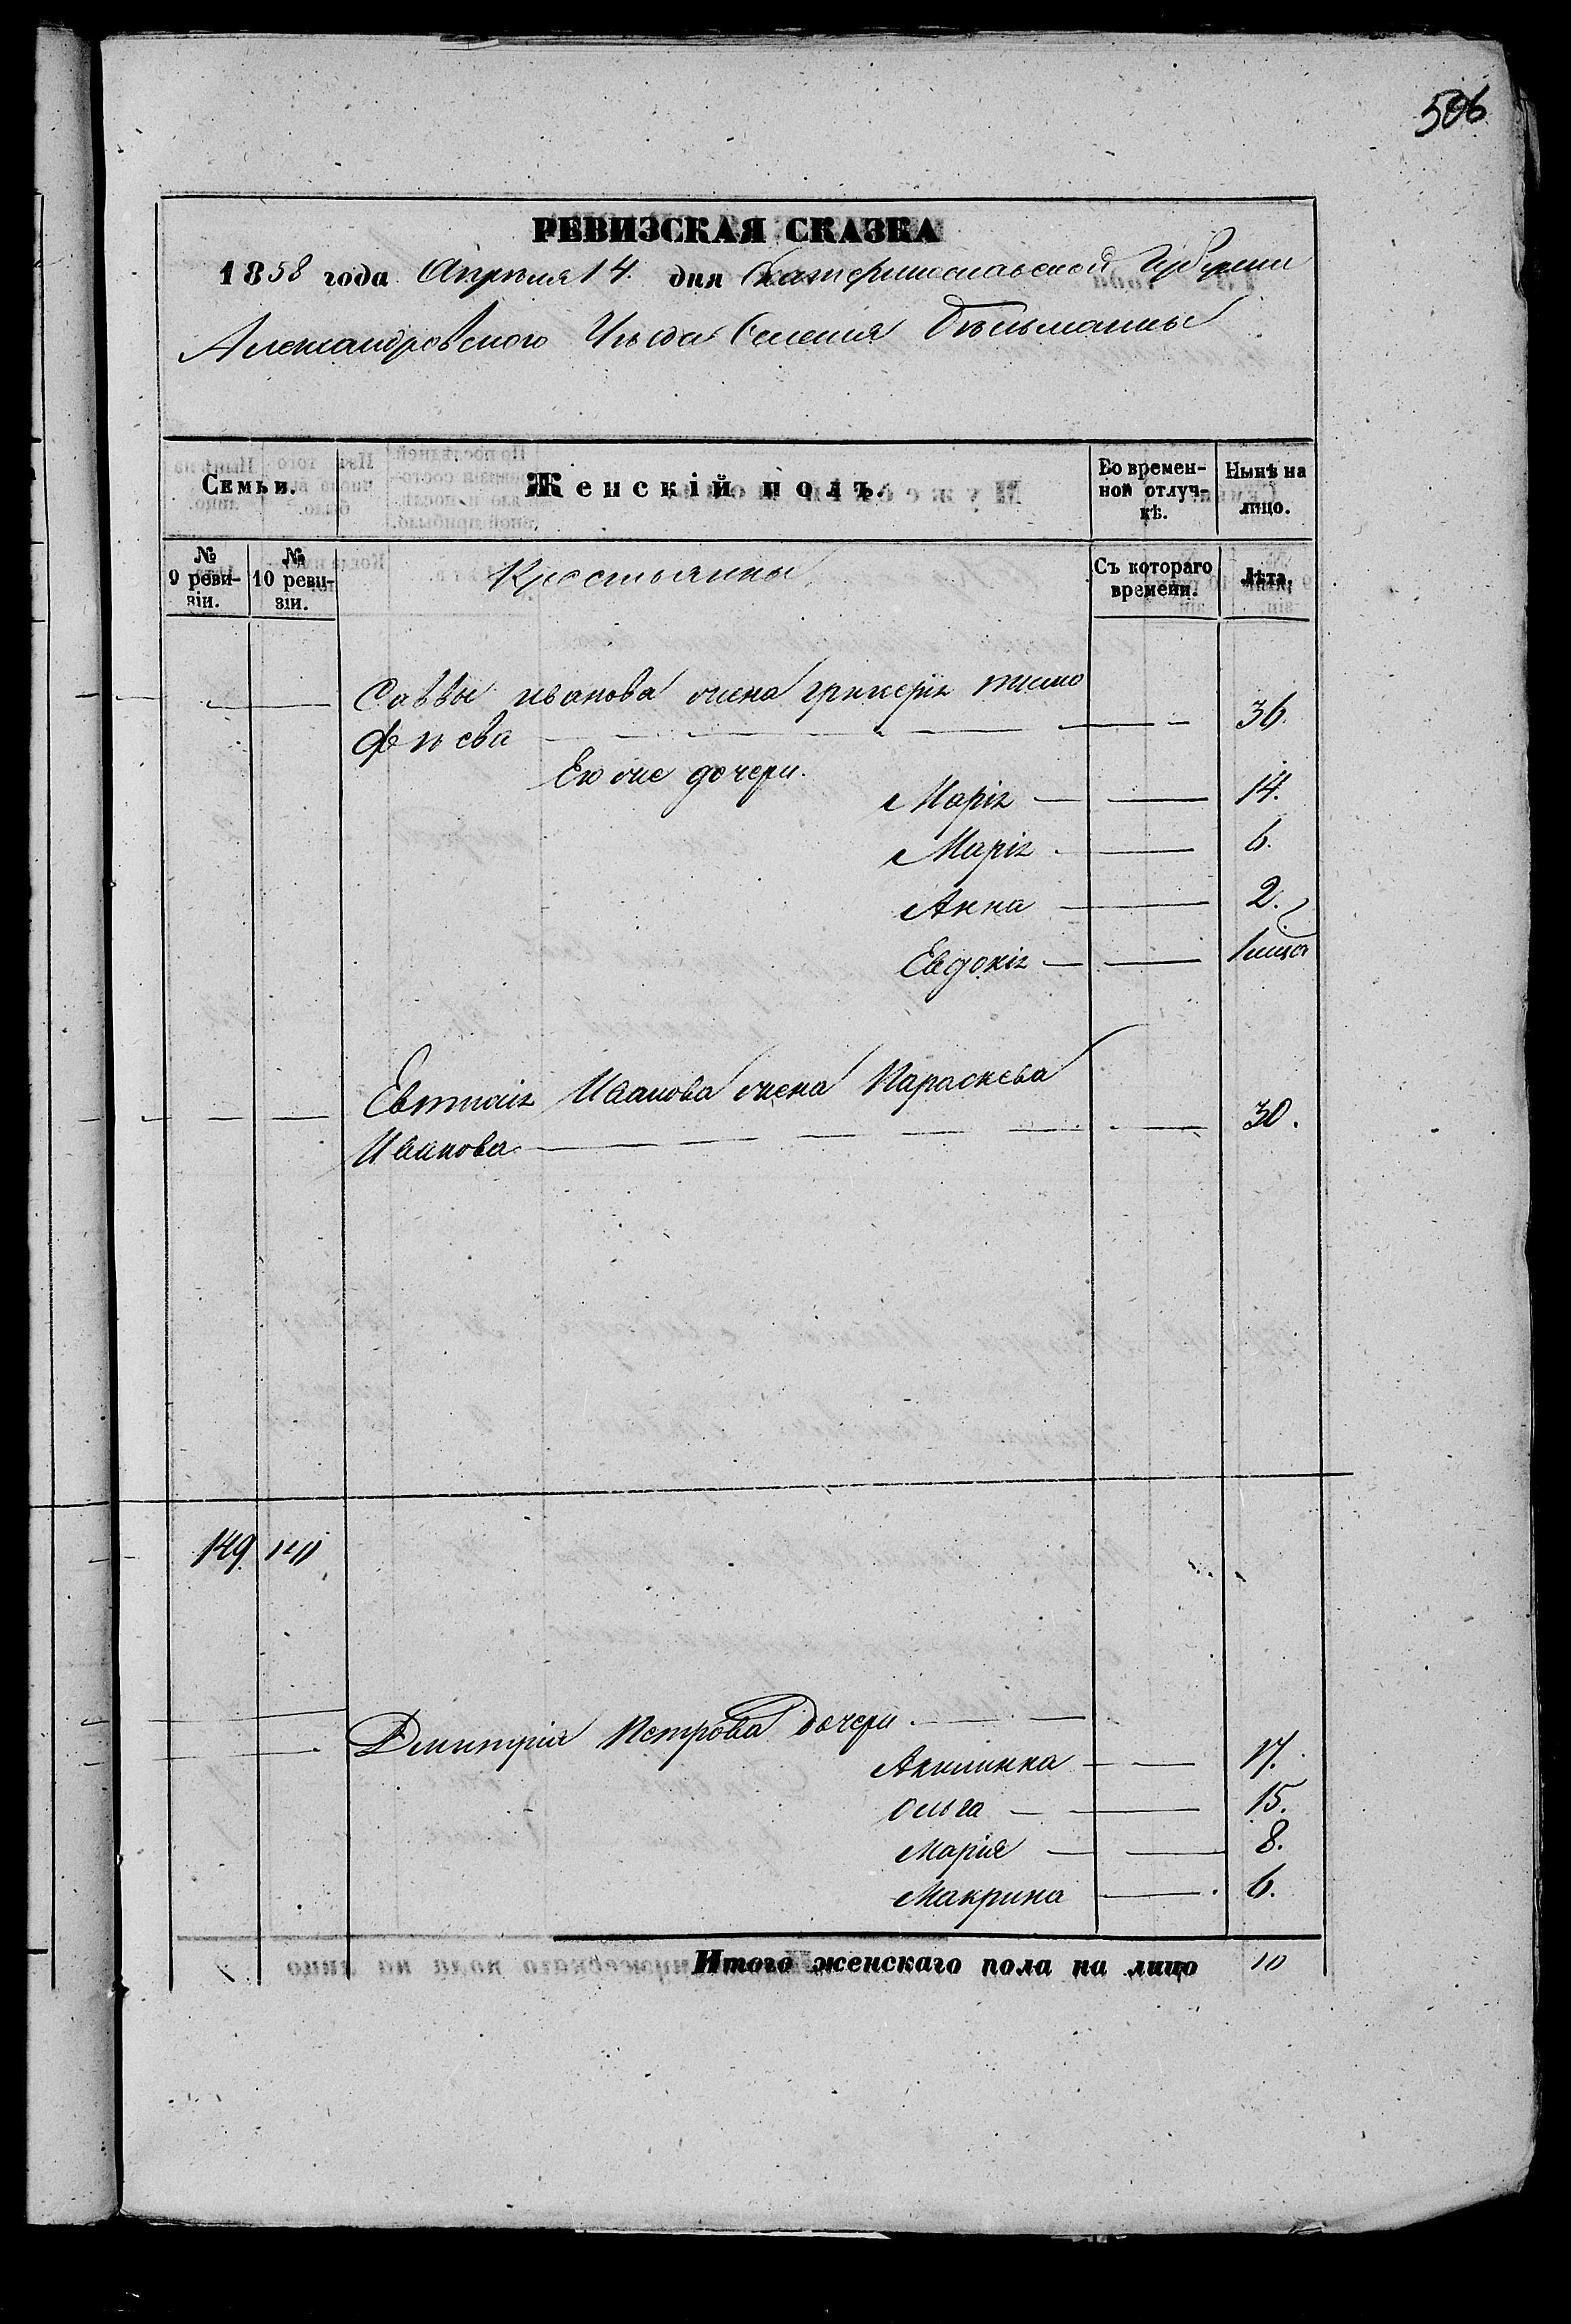 506
РЕВИЗСКАЯ СКАЗКА
1858 года Апреля 14. дня Екатеринославской Губернии
Александровского Уезда Селения Бѣльманы
Семьи. Женскій полъ. Во времен-ной отлуч-кѣ. Нынѣ на лицо.
№ 9 реви-зіи. № 10 реви-зіи. Крестьянны Съ котораго времени. Лѣта.
Саввы иванова жена Гликерія тимо
феѣва 36.
Ею же дочери.
Марія 14.
Марія 6.
Анна 2.
Евдокія
Иванова жена Параскева
Иванова 30.
149.
Дмитрія Петрова дочери
Акилинна 17.
Ольга 15.
Марія 8.
Макрина 6.
Итого женскаго пола на лицо 10